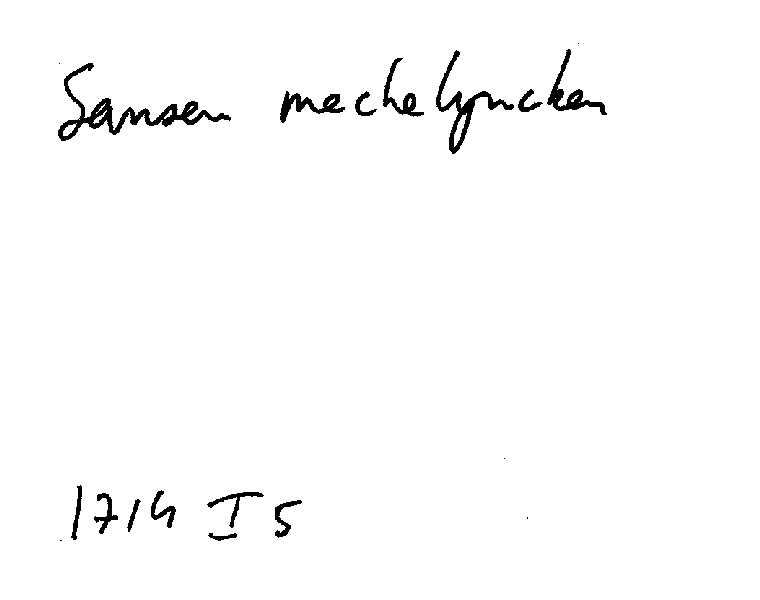 Sansen mechelyncken
1714 I 5